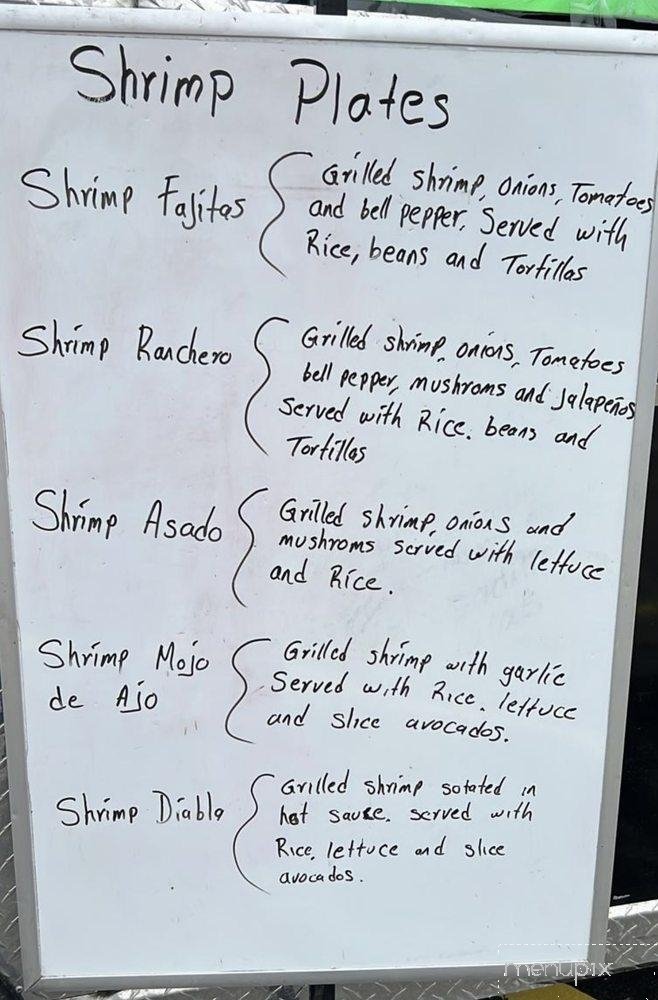 Shrimp Plates
Shrimp Fajitas
Grilled shrimp, onions, Tomatoes
and bell pepper. Served with
Rice, beans and Tortillas
Shrimp Ranchero
Grilled shrimp, onions, Tomatoes
bell pepper, mushroms and jalapeños
Served with Rice. beans and
Tortillas
Shrimp Asado
Grilled shrimp, onions and
mushroms served with lettuce
and Rice.
Shrimp Mojo
de Ajo
Grilled shrimp with garlic
Served with Rice. lettuce
and slice avocados.
Shrimp Diabla
Grilled shrimp sotated in
hot sauce. served with
Rice, lettuce and slice
avocados.
menupix